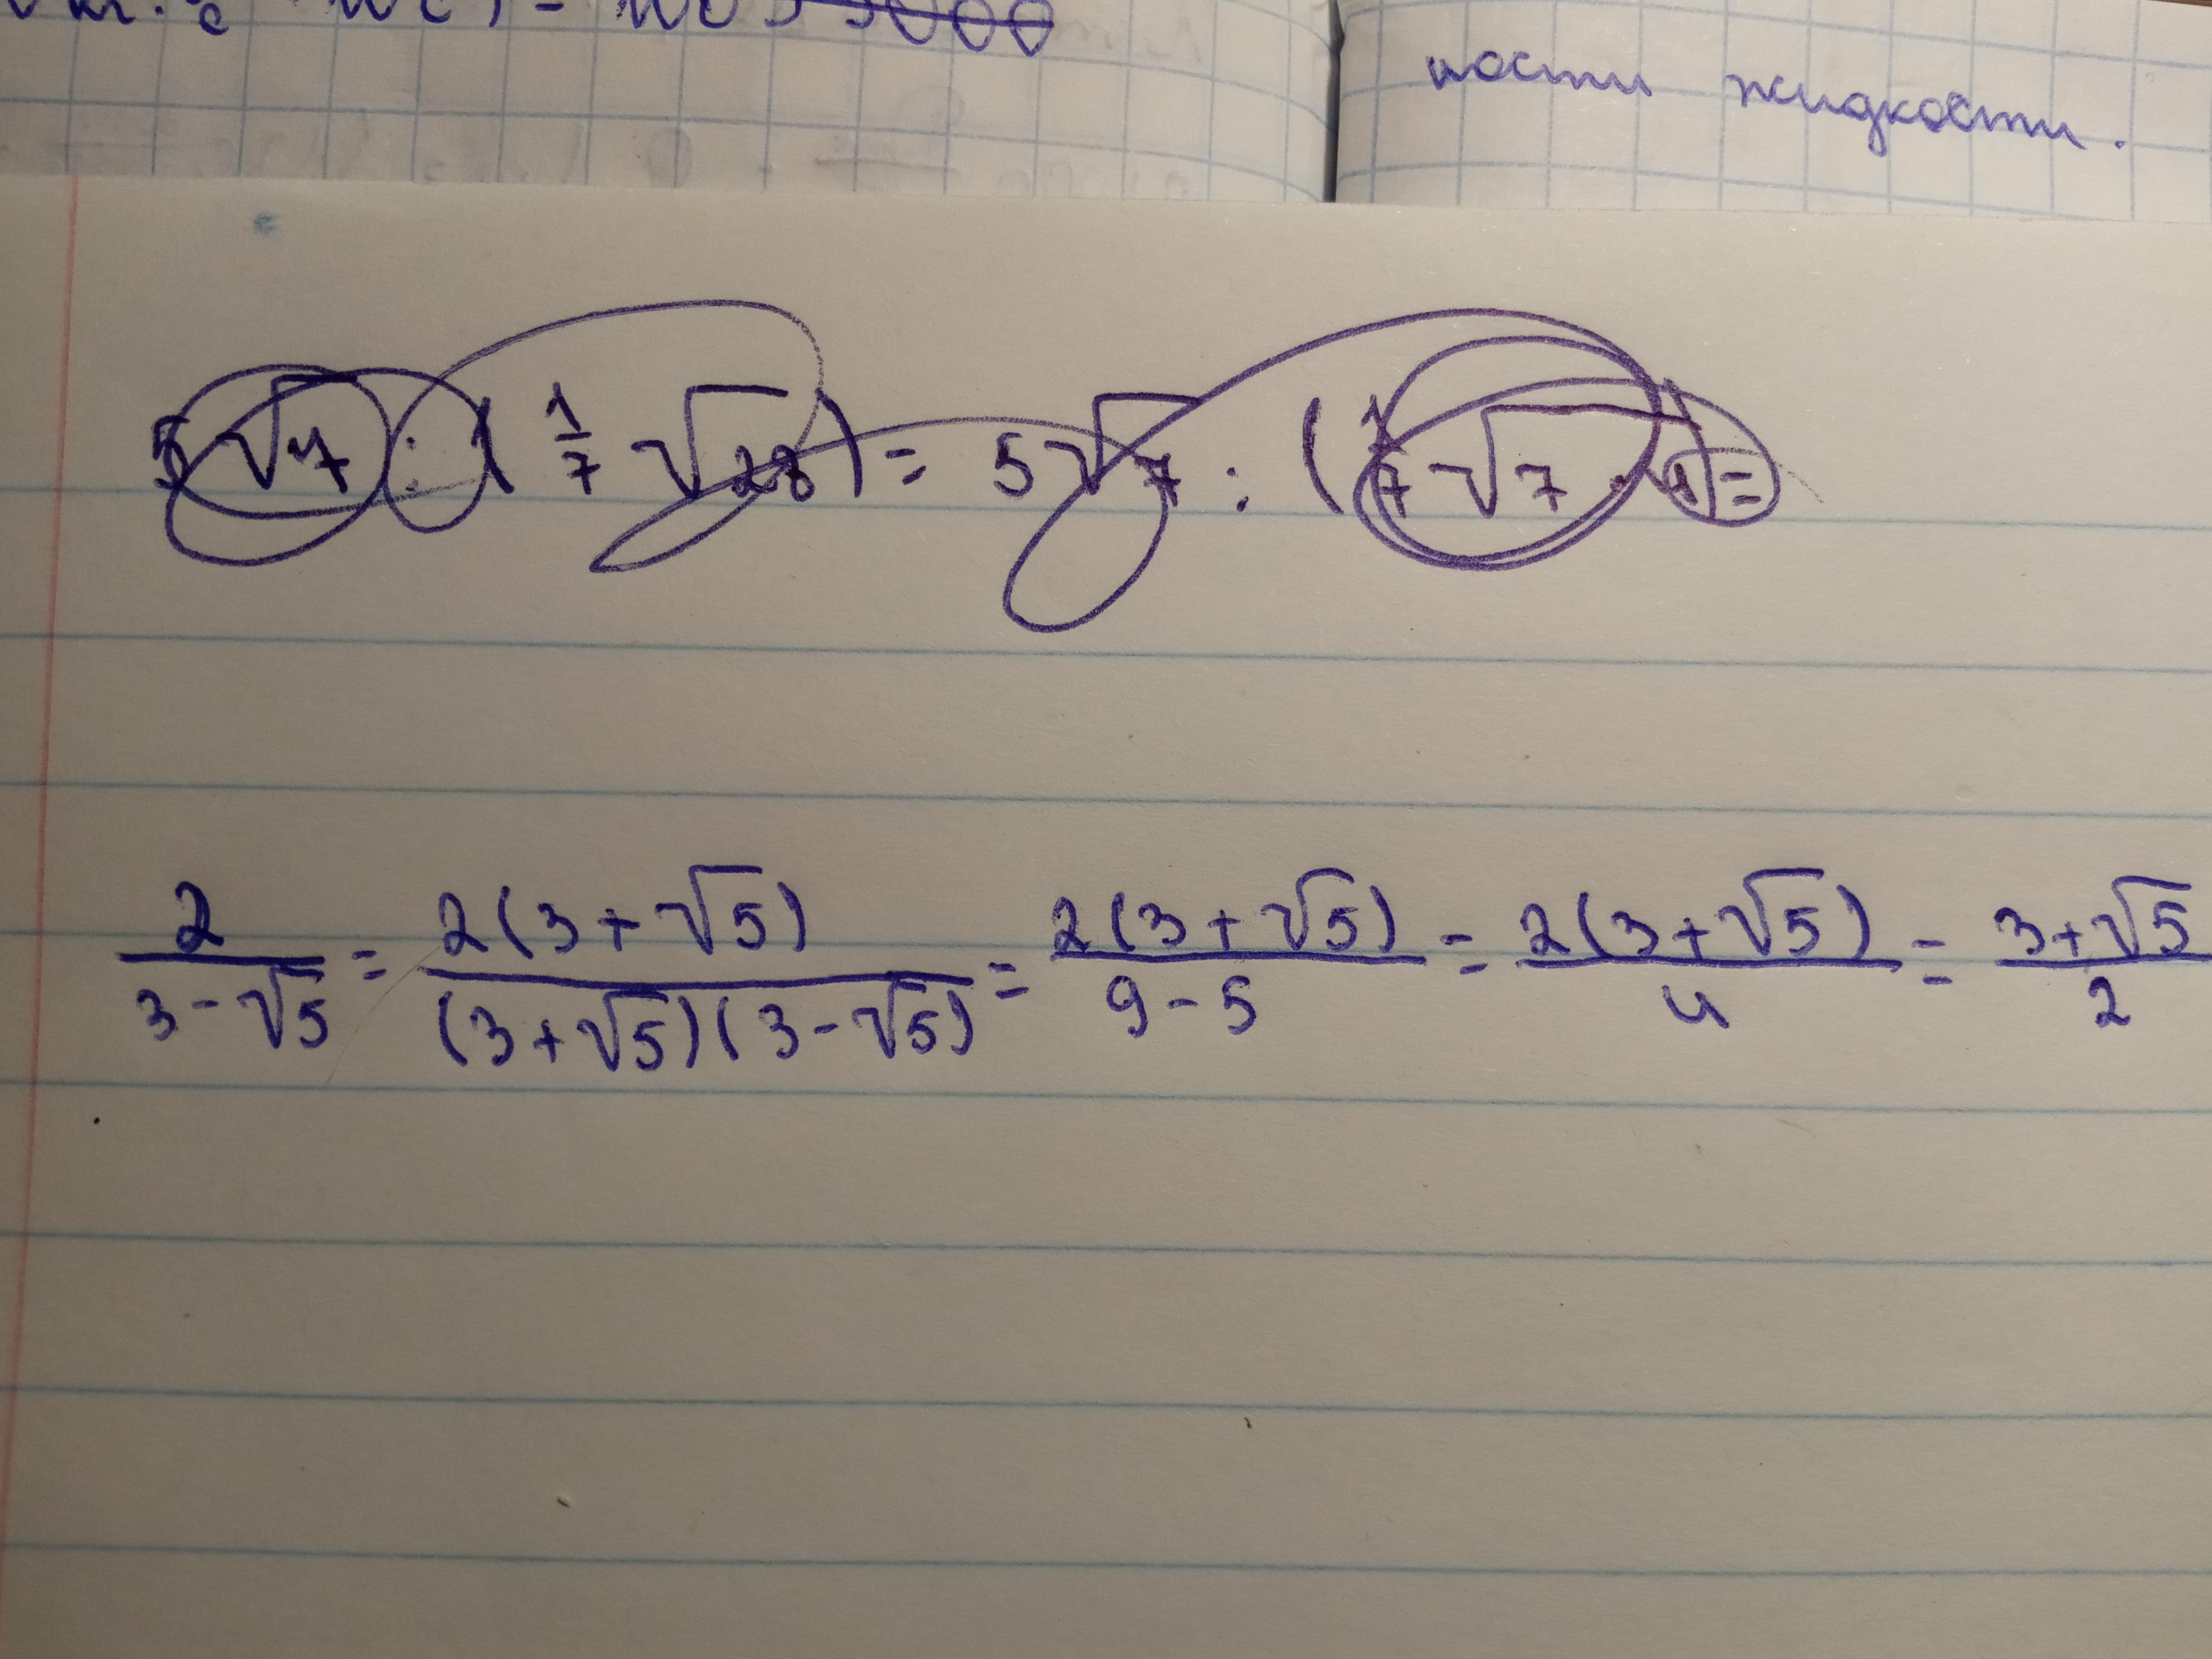 ности жидкости.
5√7 : (1/7 √28) = 5√7 : (1/7 √7 · 4) =
2/(3-√5) = 2(3+√5)/((3+√5)(3-√5)) = 2(3+√5)/(9-5) = 2(3+√5)/4 = (3+√5)/2